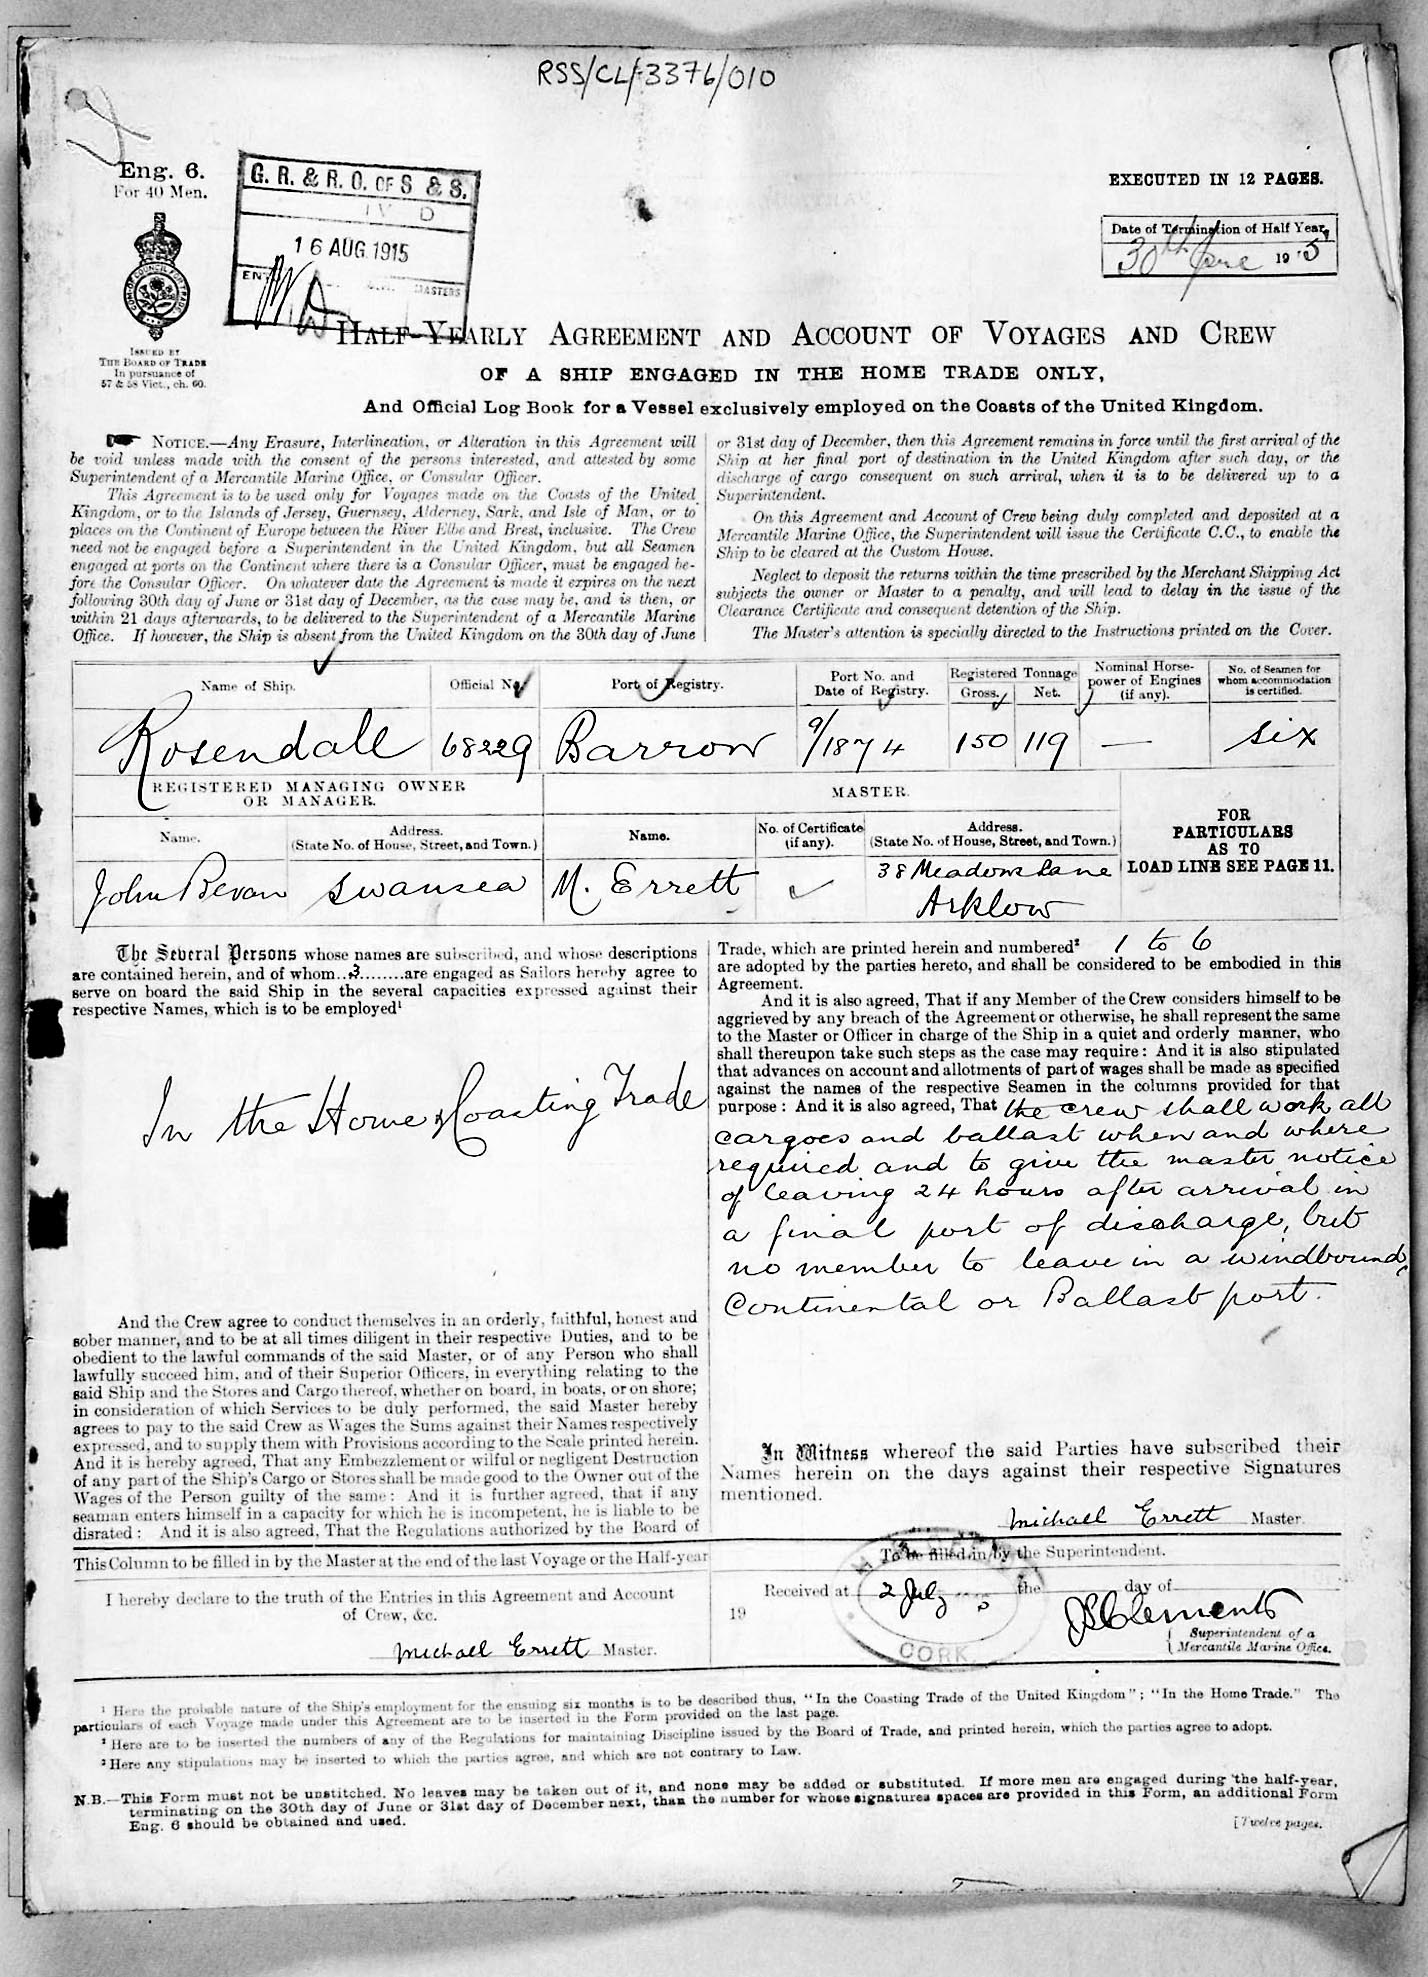 RSS/CL/3376/010
Eng. 6.
For 40 Men.
ISSUED BY
THE BOARD OF TRADE
In pursuance of
57 & 58 Vict., ch. 60.
G. R. & R. O. OF S & S.
IV D
16 AUG 1915
MASTERS
EXECUTED IN 12 PAGES.
Date of Termination of Half Year,
30th June 1915
HALF-YEARLY AGREEMENT AND ACCOUNT OF VOYAGES AND CREW
OF A SHIP ENGAGED IN THE HOME TRADE ONLY,
And Official Log Book for a Vessel exclusively employed on the Coasts of the United Kingdom.
NOTICE.—Any Erasure, Interlineation, or Alteration in this Agreement will
be void unless made with the consent of the persons interested, and attested by some
Superintendent of a Mercantile Marine Office, or Consular Officer.
This Agreement is to be used only for Voyages made on the Coasts of the United
Kingdom, or to the Islands of Jersey, Guernsey, Alderney, Sark, and Isle of Man, or to
places on the Continent of Europe between the River Elbe and Brest, inclusive. The Crew
need not be engaged before a Superintendent in the United Kingdom, but all Seamen
engaged at ports on the Continent where there is a Consular Officer, must be engaged be-
fore the Consular Officer. On whatever date the Agreement is made it expires on the next
following 30th day of June or 31st day of December, as the case may be, and is then, or
within 21 days afterwards, to be delivered to the Superintendent of a Mercantile Marine
Office. If however, the Ship is absent from the United Kingdom on the 30th day of June
or 31st day of December, then this Agreement remains in force until the first arrival of the
Ship at her final port of destination in the United Kingdom after such day, or the
discharge of cargo consequent on such arrival, when it is to be delivered up to a
Superintendent.
On this Agreement and Account of Crew being duly completed and deposited at a
Mercantile Marine Office, the Superintendent will issue the Certificate C.C., to enable the
Ship to be cleared at the Custom House.
Neglect to deposit the returns within the time prescribed by the Merchant Shipping Act
subjects the owner or Master to a penalty, and will lead to delay in the issue of the
Clearance Certificate and consequent detention of the Ship.
The Master's attention is specially directed to the Instructions printed on the Cover.
Name of Ship. Official No. Port of Registry. Port No. and Date of Registry. Registered Tonnage Gross. Net. Nominal Horse-power of Engines (if any). No. of Seamen for whom accommodation is certified.
Rosendall 68229 Barrow 9/1874 150 119 — Six
REGISTERED MANAGING OWNER
OR MANAGER.
MASTER.
Name. Address. (State No. of House, Street, and Town.) Name. No. of Certificate (if any). Address. (State No. of House, Street, and Town.)
John Bevan Swansea M. Errett 38 Meadows Lane
Arklow
FOR
PARTICULARS
AS TO
LOAD LINE SEE PAGE 11.
The Several Persons whose names are subscribed, and whose descriptions
are contained herein, and of whom..3........are engaged as Sailors hereby agree to
serve on board the said Ship in the several capacities expressed against their
respective Names, which is to be employed¹
In the Home & Coasting Trade
And the Crew agree to conduct themselves in an orderly, faithful, honest and
sober manner, and to be at all times diligent in their respective Duties, and to be
obedient to the lawful commands of the said Master, or of any Person who shall
lawfully succeed him, and of their Superior Officers, in everything relating to the
said Ship and the Stores and Cargo thereof, whether on board, in boats, or on shore;
in consideration of which Services to be duly performed, the said Master hereby
agrees to pay to the said Crew as Wages the Sums against their Names respectively
expressed, and to supply them with Provisions according to the Scale printed herein.
And it is hereby agreed, That any Embezzlement or wilful or negligent Destruction
of any part of the Ship's Cargo or Stores shall be made good to the Owner out of the
Wages of the Person guilty of the same: And it is further agreed, that if any
seaman enters himself in a capacity for which he is incompetent, he is liable to be
disrated: And it is also agreed, That the Regulations authorized by the Board of
Trade, which are printed herein and numbered² 1 to 6
are adopted by the parties hereto, and shall be considered to be embodied in this
Agreement.
And it is also agreed, That if any Member of the Crew considers himself to be
aggrieved by any breach of the Agreement or otherwise, he shall represent the same
to the Master or Officer in charge of the Ship in a quiet and orderly manner, who
shall thereupon take such steps as the case may require: And it is also stipulated
that advances on account and allotments of part of wages shall be made as specified
against the names of the respective Seamen in the columns provided for that
purpose: And it is also agreed, That the crew shall work all
cargoes and ballast when and where
required and to give the master notice
of leaving 24 hours after arrival in
a final port of discharge, but
no member to leave in a windbound,
Continental or Ballast port.
In Witness whereof the said Parties have subscribed their
Names herein on the days against their respective Signatures
mentioned.
Michael Errett Master.
This Column to be filled in by the Master at the end of the last Voyage or the Half-year
I hereby declare to the truth of the Entries in this Agreement and Account
of Crew, &c.
Michael Errett Master.
To be filled in by the Superintendent.
Received at the day of
2 July
CORK
19
JS Clements
Superintendent of a
Mercantile Marine Office.
¹ Here the probable nature of the Ship's employment for the ensuing six months is to be described thus, "In the Coasting Trade of the United Kingdom"; "In the Home Trade." The
particulars of each Voyage made under this Agreement are to be inserted in the Form provided on the last page.
² Here are to be inserted the numbers of any of the Regulations for maintaining Discipline issued by the Board of Trade, and printed herein, which the parties agree to adopt.
³ Here any stipulations may be inserted to which the parties agree, and which are not contrary to Law.
N.B.—This Form must not be unstitched. No leaves may be taken out of it, and none may be added or substituted. If more men are engaged during the half-year,
terminating on the 30th day of June or 31st day of December next, than the number for whose signatures spaces are provided in this Form, an additional Form
Eng. 6 should be obtained and used.
[Twelve pages.